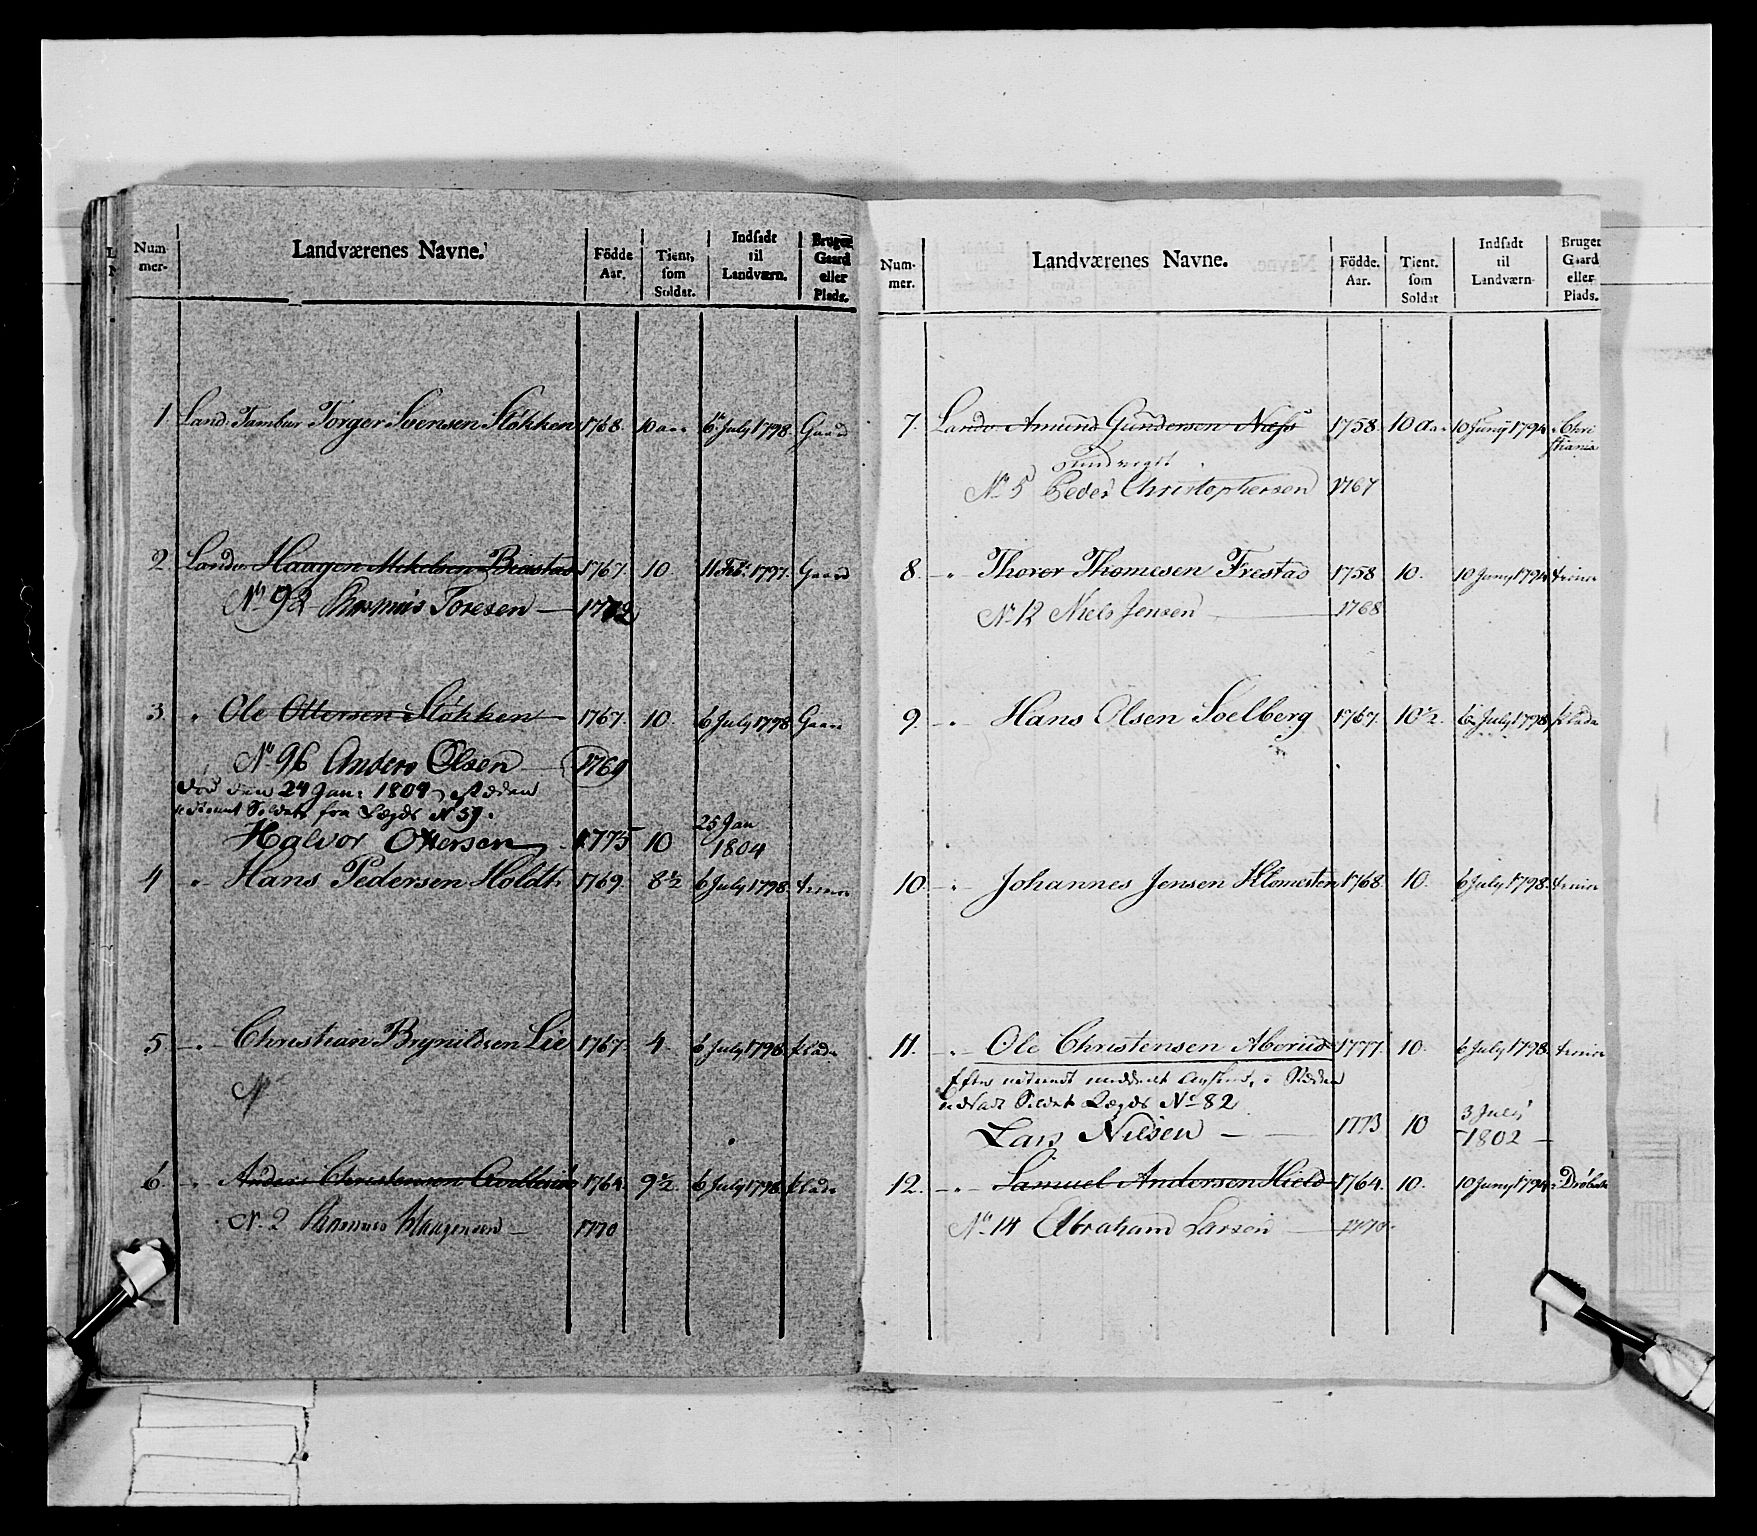 Num-
mer-
Landværenes Navne.
Födde
Aar.
Tient,
som
Soldat.
Indsadt
til
Landværn.
Bruger
Gaard
eller
Plads.
1 Land: Tambur Torger Svensen Stökken 1768. 10 aar 6te July 1798. Gaard
2. Landv: Haagen Mikelsen 1767. 10 11 Feb: 1797. Gaard
No 92 Rasmus Toresen — 1772
3 -"- Ole Ottersen Stökken 1767. 10. 6 July 1798 Gaard
No 96 Anders Olsen — 1769
död den 24 Jan: 1804, i Stæden
udtient Soldat fra Lægds No 59.
Halvor Ottersen 1775 10 25 Jan
1804
4 -"- Hans Pedersen Holdt. 1769. 8½ 6 July 1798.
5. -"- Christian Brynildsen Lie 1767. 4. 6 July 1798. Plads
No
6. -"- Anders Christensen 1764. 9½ 6 July 1798. Plads
No. 2 Rasmus Haagensen — 1770
Num-
mer.
Landværenes Navne.
Födde.
Aar.
Tient.
som
Soldat
Indsadt
til
Landværn-
Bruger
Gaard
eller
Plads.
7. Landv Amund Gundersen Næss 1758. 10 aar 10 Juny 1794. Chri
stiania
No 5 Peder Christophersen 1767
8. -"- Thorer Thomesen Frestad 1758 10. 10 Juny 1794
No 12 Niels Jensen — 1768
9. -"- Hans Olsen Soelberg 1767. 10½. 6 July 1798. Plads
10. -"- Johannes Jensen 1768. 10. 6 July 1798.
11. -"- Ole Christensen Aberud 1777. 10. 6 July 1798.
Efter i Stæden
udtiadt Soldat Lægds No 82
Lars Nilsen — 1773 10 3 July
1802 —
12. -"- Samuel Andersen Hield 1764. 10. 10 Juny 1794. Dröbak
No 14 Abraham Larsen — 1770.